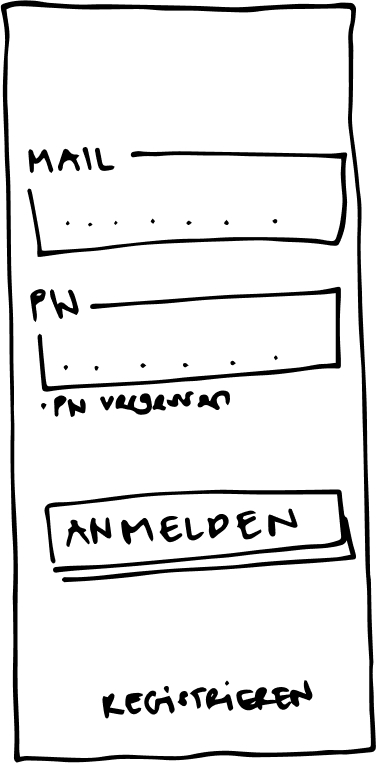 MAIL
. . . . . . . .
PW
. . . . . .
· PW vergessen
ANMELDEN
REGiSTRiEREN